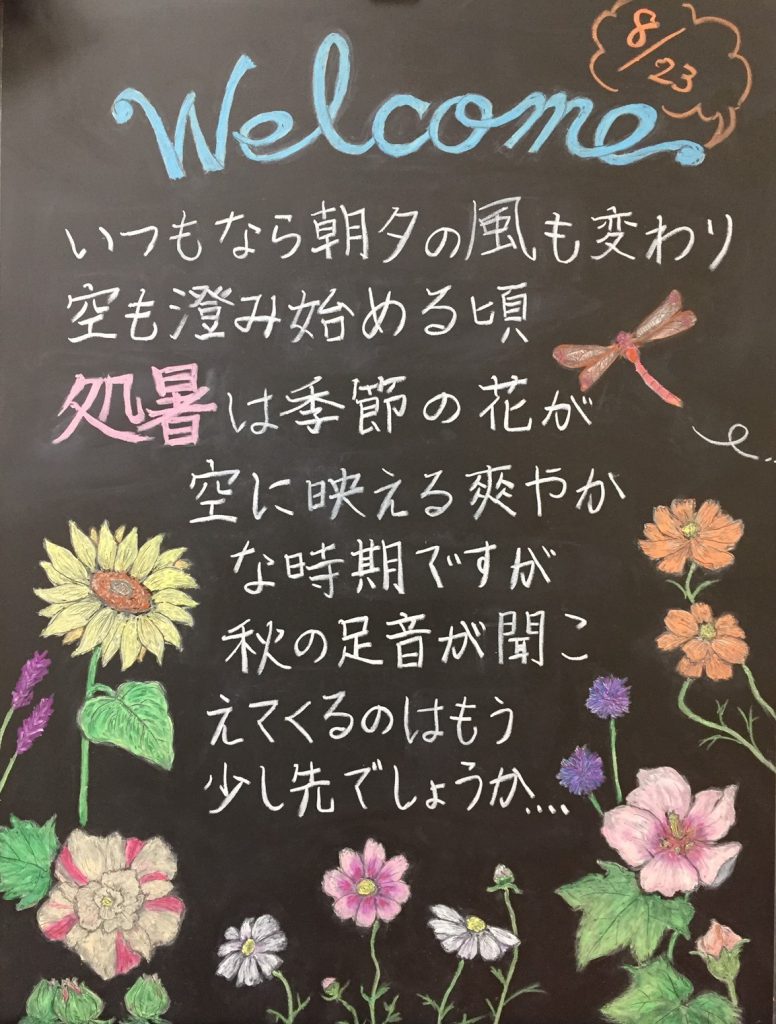 8/23
Welcome
いつもなら朝夕の風も変わり
空も澄み始める頃
処暑は季節の花が
空に映える爽やか
な時期ですが
秋の足音が聞こ
えてくるのはもう
少し先でしょうか....